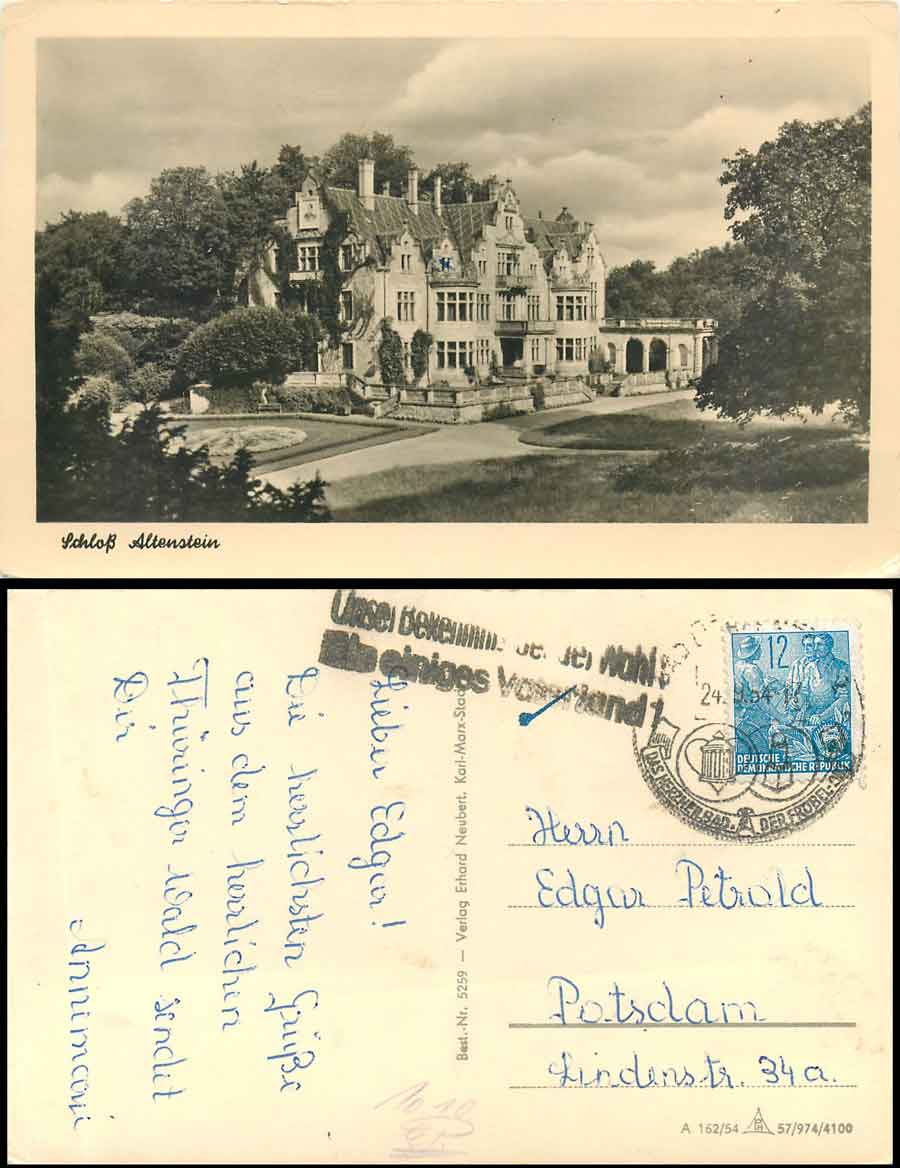 Schloß Altenstein
Unser Bekenntnis bei der Wahl
Ein einiges Vaterland!
24. .54
12
DEUTSCHE
DEMOKRATISCHE REPUBLIK
DAS HERZHEILBAD DER FRÖBEL
Lieber Edgar!
Die herrlichsten Grüße
aus dem herrlichen
Thüringer Wald sendet
Dir
Annimarie
Best.-Nr. 5259 — Verlag Erhard Neubert, Karl-Marx-Stadt
Herrn
Edgar Petzold
Potsdam
Lindenstr. 34a.
A 162/54 57/974/4100